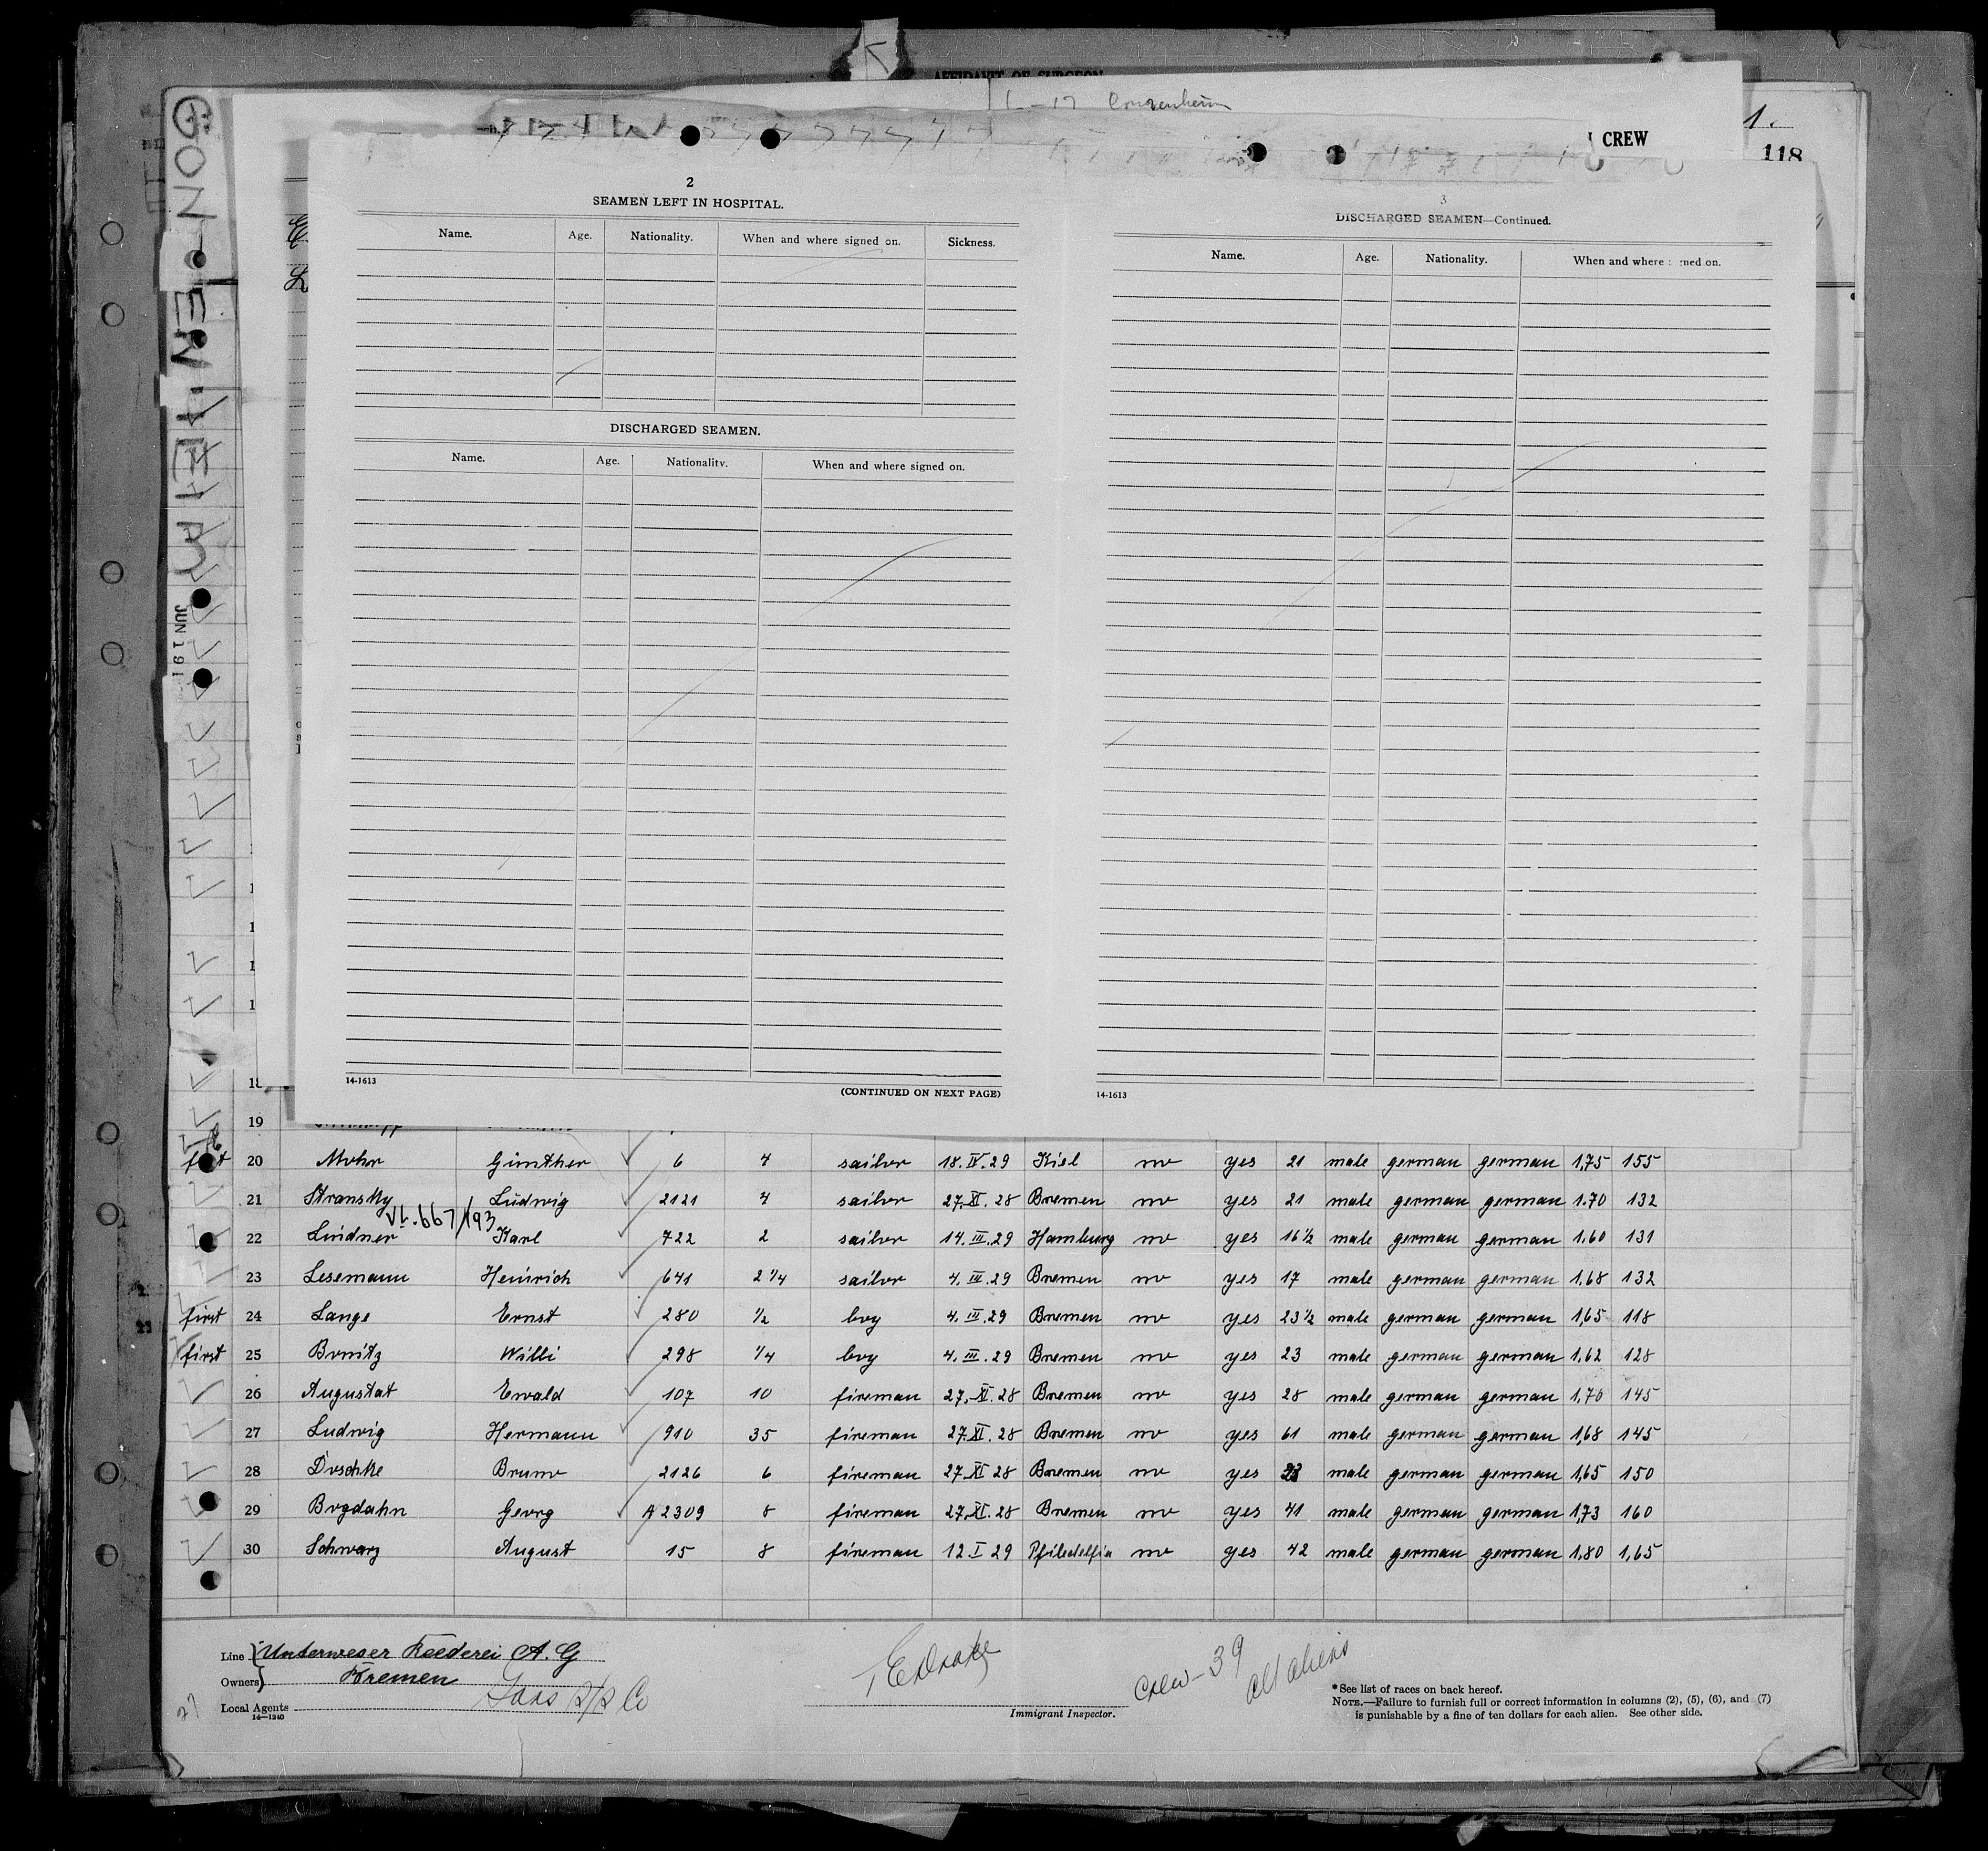 AFFIDAVIT OF SURGEON
L-17 Gonzenheim
1.
CREW
118
GONZENHEIM
JUN 1 91
2
SEAMEN LEFT IN HOSPITAL.
Name. Age. Nationality. When and where signed on. Sickness.
DISCHARGED SEAMEN.
Name. Age. Nationality. When and where signed on.
14-1613
(CONTINUED ON NEXT PAGE)
3
DISCHARGED SEAMEN—Continued.
Name. Age. Nationality. When and where med on.
14-1613
18
19
20 Mohr Günther 6 4 sailor 18.IV.29 Kiel no yes 21 male german german 1,75 155
21 Stransky Ludwig 2121 4 sailor 27.XI.28 Bremen no yes 21 male german german 1.70 132
VL.667/193
22 Lindner Karl 722 2 sailor 14.III.29 Hamburg no yes 16½ male german german 1.60 131
23 Lesemann Heinrich 641 2¼ sailor 4.III.29 Bremen no yes 17 male german german 1,68 132
first 24 Lange Ernst 280 ½ boy 4.III.29 Bremen no yes 23½ male german german 1,65 118
first 25 Bonitz Willi 298 ¼ boy 4.III.29 Bremen no yes 23 male german german 1,62 128
26 Augustat Ewald 107 10 fireman 27.XI.28 Bremen no yes 28 male german german 1,70 145
27 Ludwig Hermann 910 35 fireman 27.XI.28 Bremen no yes 61 male german german 1,68 145
28 Doschke Bruno 2126 6 fireman 27.XI 28 Bremen no yes male german german 1,65 150
29 Bogdahn Georg A 2309 8 fireman 27.XI.28 Bremen no yes 41 male german german 1,73 160
30 Schwarz August 15 8 fireman 12.I 29 Pfiledelfia no yes 42 male german german 1,80 1,65
Line Unterweser Reederei A.G
Owners Bremen
Local Agents
14—1240
27
Immigrant Inspector.
Crew - 39
all aliens
*See list of races on back hereof.
NOTE.—Failure to furnish full or correct information in columns (2), (5), (6), and (7)
is punishable by a fine of ten dollars for each alien. See other side.